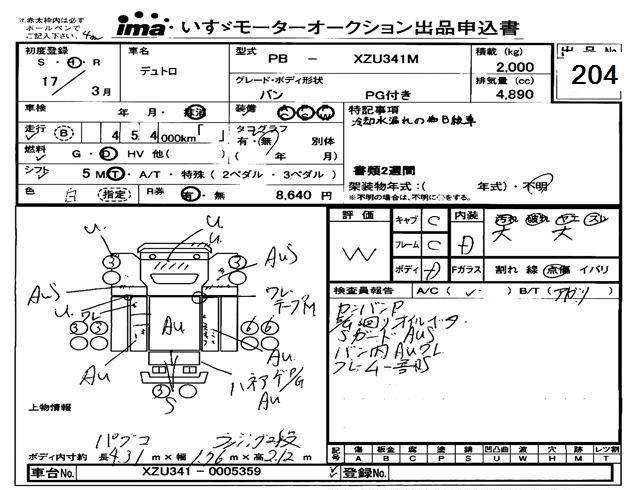 注.赤太枠内は必ず
ボールペンで
ご記入下さい.
ima いすゞモーターオークション出品申込書
初度登録 車名 型式 PB - XZU341M 積載 (kg) 出品No
S・H・R デュトロ グレード・ボディ形状 2,000 204
17 3月 バン PG付き 排気量 (cc)
4,890
車検 年 月・抹消 装備 A/C P/S P/W 特記事項
走行 (B) 454,000km「 」 タコグラフ 冷却水漏れの為日経車
有・無 別体
燃料 G・D HV 他( ) ( 年 月) 書類2週間
シフト 5 MT・A/T・特殊(2ペダル・3ペダル) 架装物年式:( 年式)・不明
※不明の場合は、不明に○をする。
色 白 (指定) R券 有・無 8,640 円
評価 キャブ C 内装 汚れ 破れ ヤニ スレ
W フレーム C D 大 大
ボディ D Fガラス 割れ 線 点傷 イバリ
検査員報告 A/C( ✓ ) B/T(アガリ)
カンバンP
Sガード AUS
バン内 AUワレ
フレーム一部S
U. U. U.
3 3 AUS
AUS ワレ
テープハM
U ワレ
3 3 AU 6 6
AU AU.
3 S AU
上物情報
パブコ ラッシング2段
ボディ内寸約 長4.31 m×幅1.76 m×高2.12 m
記号 傷 板金 腐 塗 錆 凹凸曲 波 穴 跡 レツ割
A B C P S U W H M T
車台No. XZU341 - 0005359 登録No.